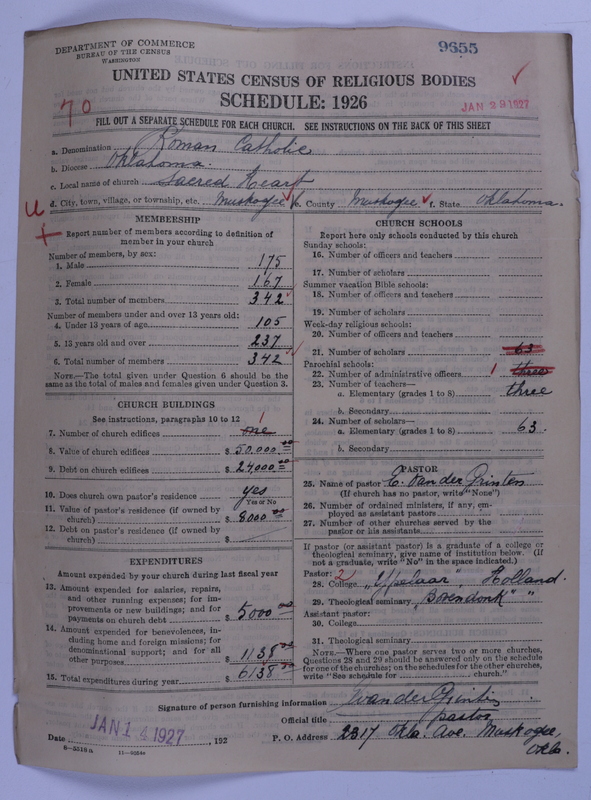 DEPARTMENT OF COMMERCE
BUREAU OF THE CENSUS
WASHINGTON
9655
UNITED STATES CENSUS OF RELIGIOUS BODIES
SCHEDULE: 1926
70
JAN 29 1927
FILL OUT A SEPARATE SCHEDULE FOR EACH CHURCH. SEE INSTRUCTIONS ON THE BACK OF THIS SHEET
a. Denomination Roman Catholic
b. Diocese Oklahoma.
c. Local name of church Sacred Heart
d. City, town, village, or township, etc. Muskogee e. County Muskogee f. State Oklahoma.
MEMBERSHIP
Report number of members according to definition of
member in your church
Number of members, by sex:
1. Male 175
2. Female 167
3. Total number of members 342
Number of members under and over 13 years old:
4. Under 13 years of age 105
5. 13 years old and over 237
6. Total number of members 342
NOTE.—The total given under Question 6 should be the
same as the total of males and females given under Question 3.
CHURCH BUILDINGS
See instructions, paragraphs 10 to 12
1
7. Number of church edifices one
8. Value of church edifices $ 50.000.00
9. Debt on church edifices $ 24000.00
10. Does church own pastor's residence yes
Yes or No
11. Value of pastor's residence (if owned by
church) $ 8000.00
12. Debt on pastor's residence (if owned by
church) $
EXPENDITURES
Amount expended by your church during last fiscal year
13. Amount expended for salaries, repairs,
and other running expenses; for im-
provements or new buildings; and for
payments on church debt $ 5000.00
14. Amount expended for benevolences, in-
cluding home and foreign missions; for
denominational support; and for all
other purposes $ 1138.00
15. Total expenditures during year $ 6138.00
CHURCH SCHOOLS
Report here only schools conducted by this church
Sunday schools:
16. Number of officers and teachers
17. Number of scholars
Summer vacation Bible schools:
18. Number of officers and teachers
19. Number of scholars
Week-day religious schools:
20. Number of officers and teachers
21. Number of scholars 63
Parochial schools:
22. Number of administrative officers 1 three
23. Number of teachers—
a. Elementary (grades 1 to 8) three
b. Secondary
24. Number of scholars—
a. Elementary (grades 1 to 8) 63.
b. Secondary
PASTOR
25. Name of pastor E. Van der Grinten
(If church has no pastor, write "None")
26. Number of ordained ministers, if any, em-
ployed as assistant pastors
27. Number of other churches served by the
pastor or his assistants
If pastor (or assistant pastor) is a graduate of a college or
theological seminary, give name of institution below. (If
not a graduate, write "No" in the space indicated.)
Pastor: 2
28. College "Ypelaar", Holland.
29. Theological seminary "Bovendonk" "
Assistant pastor:
30. College
31. Theological seminary
NOTE.—Where one pastor serves two or more churches,
Questions 28 and 29 should be answered only on the schedule
for one of the churches; on the schedules for the other churches,
write "See schedule for church."
Signature of person furnishing information
Official title pastor
Date JAN 14 1927, 192
P. O. Address 2317 Okla. Ave. Muskogee,
Okla.
8-5518a 11-9564a